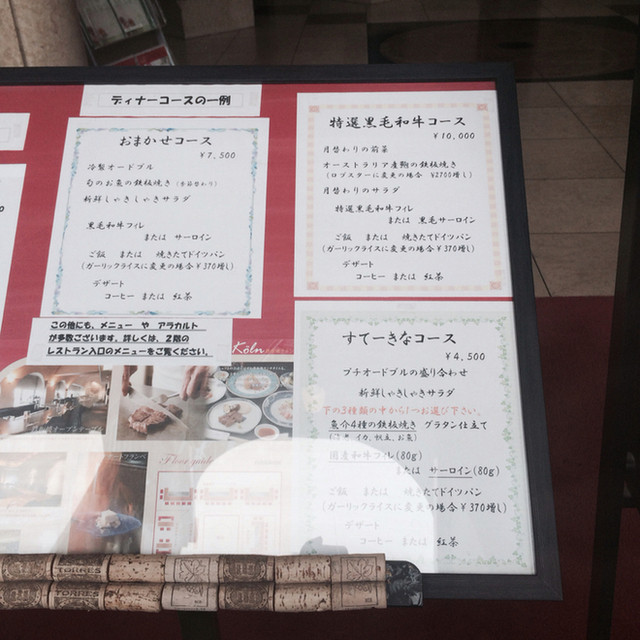 ディナーコースの一例
おまかせコース
￥7,500
冷製オードブル
旬のお魚の鉄板焼き(季節替わり)
新鮮しゃきしゃきサラダ
黒毛和牛フィレ
または サーロイン
ご飯 または 焼きたてドイツパン
(ガーリックライスに変更の場合￥370増し)
デザート
コーヒー または 紅茶
この他にも、メニュー や アラカルト
が多数ございます。詳しくは、2階の
レストラン入口のメニューをご覧ください。
特選黒毛和牛コース
￥10,000
月替わりの前菜
オーストラリア産鮑の鉄板焼き
(ロブスターに変更の場合 ￥2700増し)
月替わりのサラダ
特選黒毛和牛フィレ
または 黒毛サーロイン
ご飯 または 焼きたてドイツパン
(ガーリックライスに変更の場合￥370増し)
デザート
コーヒー または 紅茶
すてーきなコース
￥4,500
プチオードブルの盛り合わせ
新鮮しゃきしゃきサラダ
下の3種類の中から1つお選び下さい。
魚介4種の鉄板焼き グラタン仕立て
イカ、帆立、お魚)
国産和牛フィレ(80g)
または サーロイン(80g)
ご飯 または 焼きたてドイツパン
(ガーリックライスに変更の場合￥370増し)
デザート
コーヒー または 紅茶
Köln
Floor guide
TORRES
TORRES